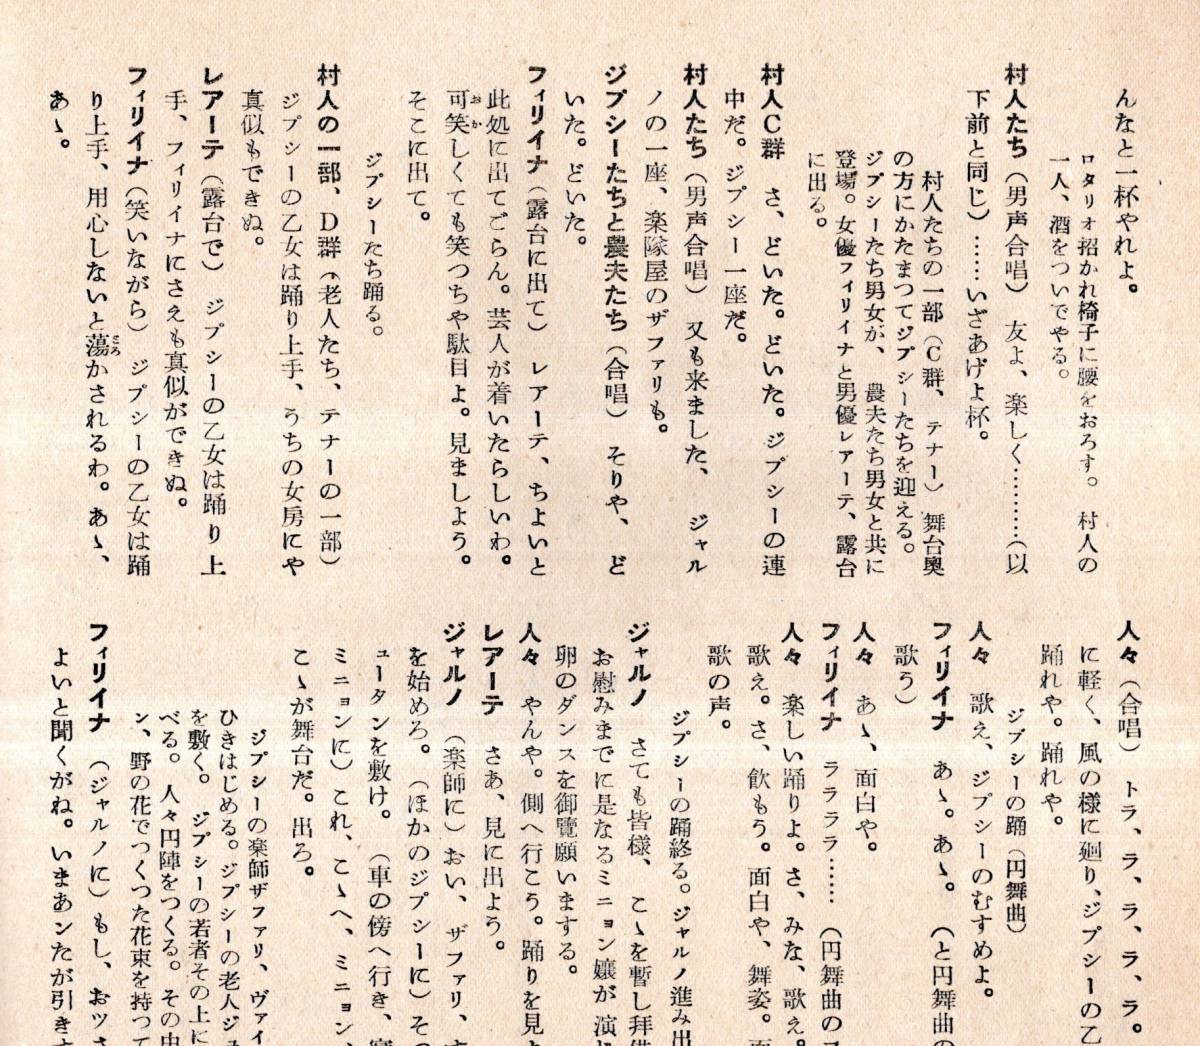 んなと一杯やれよ。
ロタリオ招かれ椅子に腰をおろす。村人の
一人、酒をついでやる。
村人たち（男声合唱）　友よ、楽しく…………（以
下前と同じ）……いざあげよ杯。
村人たちの一部（Ｃ群、テナー）舞台奥
の方にかたまつてジプシーたちを迎える。
ジプシーたち男女が、農夫たち男女と共に
登場。女優フィリイナと男優レアーテ、露台
に出る。
村人Ｃ群　さ、どいた。どいた。ジプシーの連
中だ。ジプシー一座だ。
村人たち（男声合唱）　又も来ました、ジャル
ノの一座、楽隊屋のザファリも。
ジプシーたちと農夫たち（合唱）　そりや、ど
いた。どいた。
フィリイナ（露台に出て）　レアーテ、ちよいと
此処に出てごらん。芸人が着いたらしいわ。
可笑しくても笑つちや駄目よ。見ましよう。
おか
そこに出て。
ジプシーたち踊る。
村人の一部、Ｄ群（老人たち、テナーの一部）
ジプシーの乙女は踊り上手、うちの女房にや
真似もできぬ。
レアーテ（露台で）　ジプシーの乙女は踊り上
手、フィリイナにさえも真似ができぬ。
フィリイナ（笑いながら）　ジプシーの乙女は踊
り上手、用心しないと蕩かされるわ。あゝ、
ころ
あゝ。
人々（合唱）　トラ、ラ、ラ、ラ、ラ。
に軽く、風の様に廻り、ジプシーの乙
踊れや。踊れや。
ジプシーの踊（円舞曲）
人々　歌え、ジプシーのむすめよ。
フィリイナ　あゝ。あゝ。（と円舞曲の
歌う）
人々　あゝ、面白や。
フィリイナ　ラララ……（円舞曲の
人々　楽しい踊りよ。さ、みな、歌え。
歌え。さ、飲もう。面白や、舞姿。
歌の声。
ジプシーの踊終る。ジャルノ進み出
ジャルノ　さても皆様、こゝを暫し拝借
お慰みまでに是なるミニョン嬢が演じ
卵のダンスを御覧願いまする。
人々　やんや。側へ行こう。踊りを見よ
レアーテ　さあ、見に出よう。
ジャルノ　（楽師に）おい、ザファリ、す
を始めろ。（ほかのジプシーに）そつ
ュータンを敷け。（車の傍へ行き、寝
ミニョンに）これ、こゝへ、ミニョン、
こゝが舞台だ。出ろ。
ジプシーの楽師ザファリ、ヴァイ
ひきはじめる。ジプシーの老人ジュ
を敷く。ジプシーの若者その上に
べる。人々円陣をつくる。その中
ン、野の花でつくつた花束を持つて
フィリイナ　（ジャルノに）もし、おツさ
よいと聞くがね。いまあンたが引きず